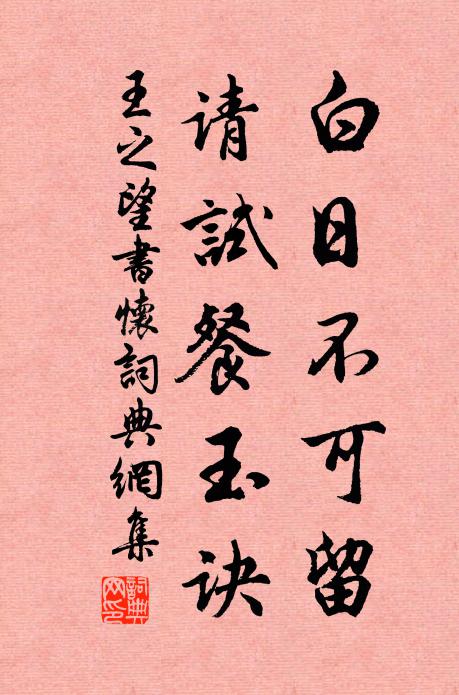 白日不可留
请試餐玉诀
王之望書懷詞典網集
詞典网印